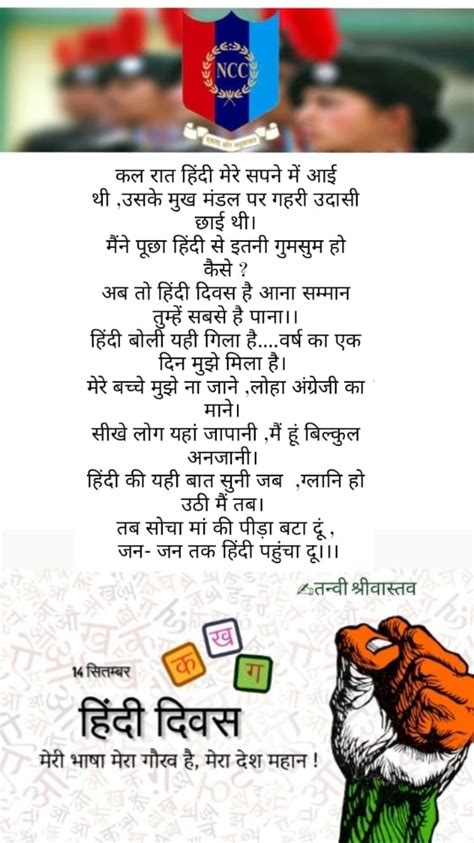 NCC
एकता और अनुशासन
कल रात हिंदी मेरे सपने में आई
थी ,उसके मुख मंडल पर गहरी उदासी
छाई थी।
मैंने पूछा हिंदी से इतनी गुमसुम हो
कैसे ?
अब तो हिंदी दिवस है आना सम्मान
तुम्हें सबसे है पाना।।
हिंदी बोली यही गिला है....वर्ष का एक
दिन मुझे मिला है।
मेरे बच्चे मुझे ना जाने ,लोहा अंग्रेजी का
माने।
सीखे लोग यहां जापानी ,मैं हूं बिल्कुल
अनजानी।
हिंदी की यही बात सुनी जब ,ग्लानि हो
उठी मैं तब।
तब सोचा मां की पीड़ा बटा दूं ,
जन- जन तक हिंदी पहुंचा दू।।।
✍तन्वी श्रीवास्तव
क ख ग
14 सितम्बर
हिंदी दिवस
मेरी भाषा मेरा गौरव है, मेरा देश महान !